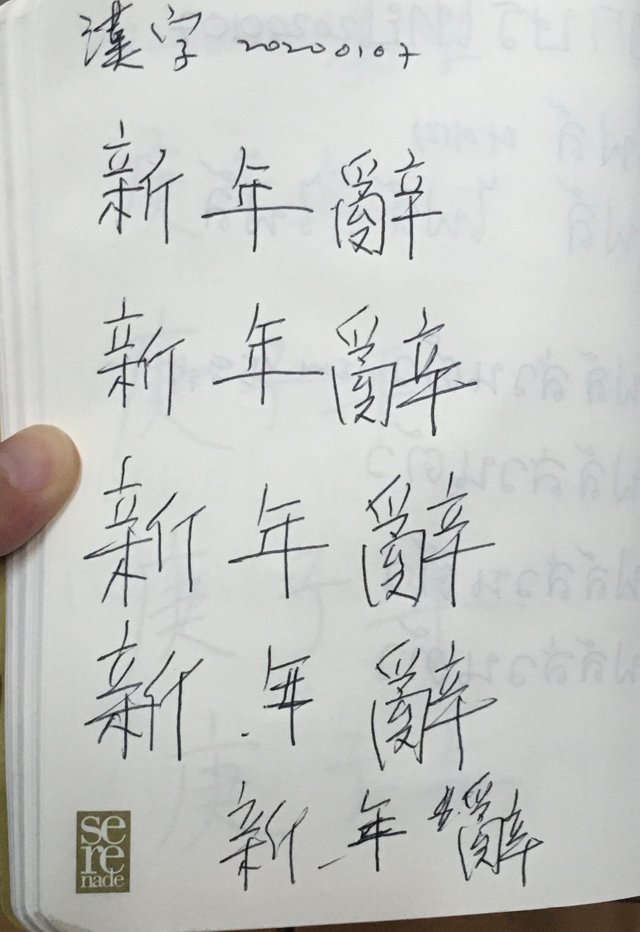 漢字 20200107
新年辭
新年辭
新年辭
新年辭
新年辭
serenade